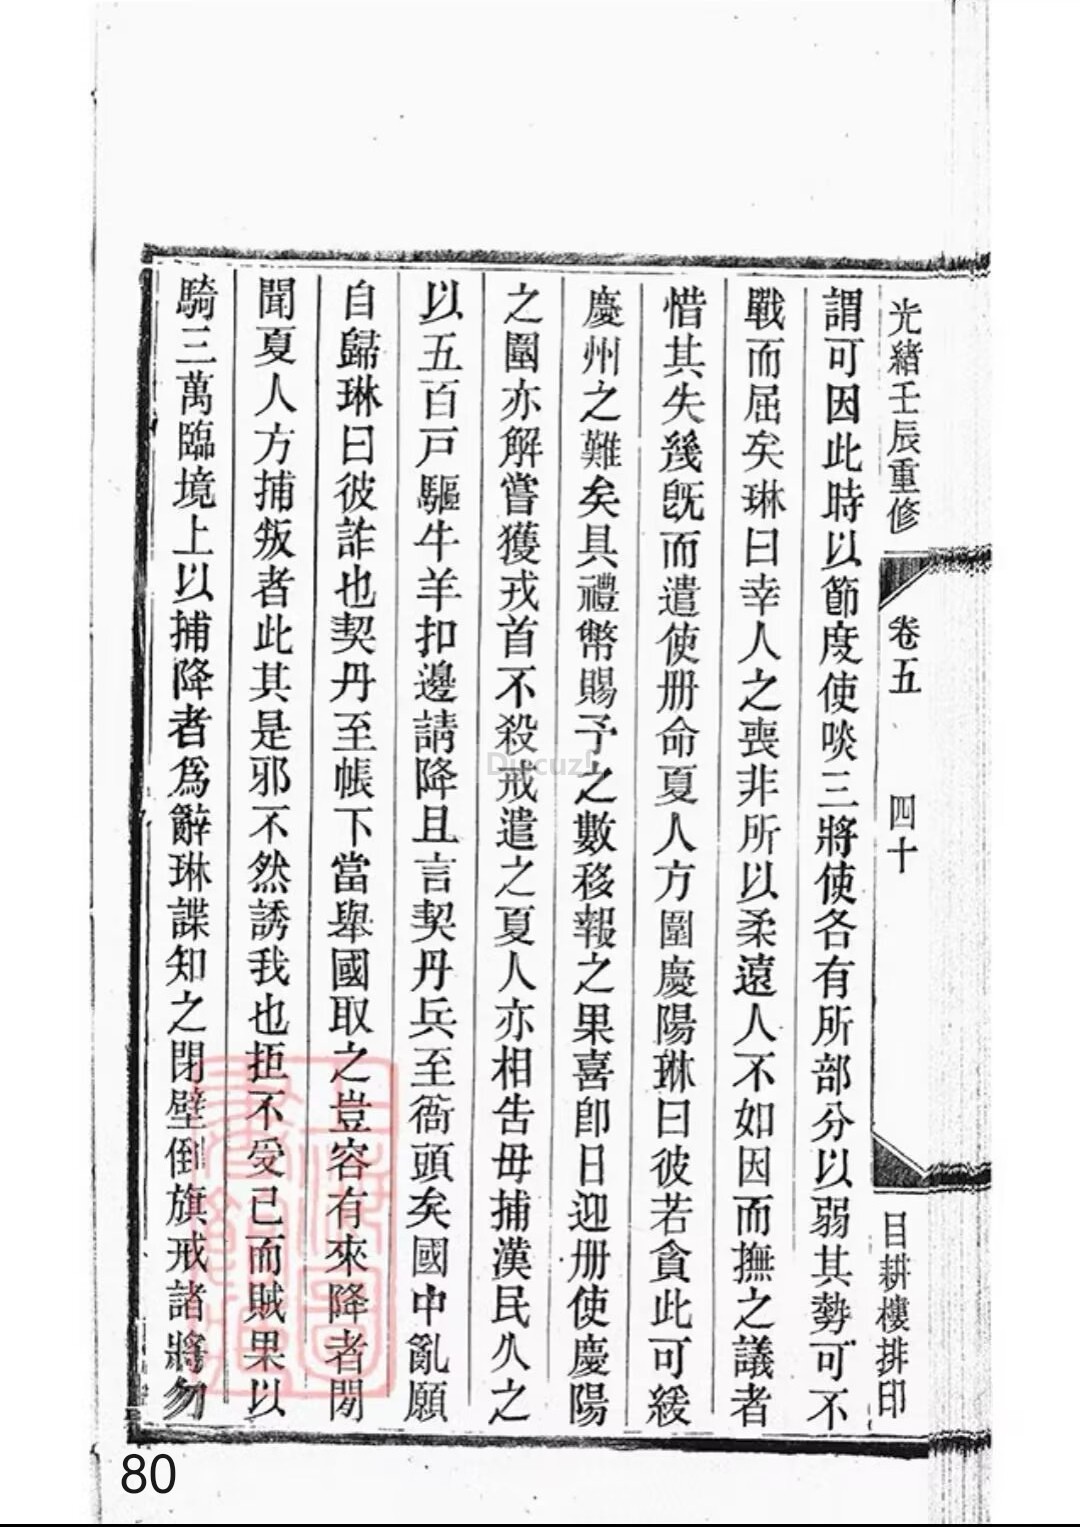 光緒壬辰重修
卷五
四十
目耕樓排印
謂可因此時以節度使啖三將使各有所部分以弱其勢可不
戰而屈矣琳曰幸人之喪非所以柔遠人不如因而撫之議者
惜其失幾旣而遣使册命夏人方圍慶陽琳曰彼若貪此可緩
慶州之難矣具禮幣賜予之數移報之果喜卽日迎册使慶陽
之圍亦解嘗獲戎首不殺戒遣之夏人亦相告毋捕漢民久之
以五百戸驅牛羊扣邊請降且言契丹兵至衙頭矣國中亂願
自歸琳曰彼詐也契丹至帳下當舉國取之豈容有來降者間
聞夏人方捕叛者此其是邪不然誘我也拒不受已而賊果以
騎三萬臨境上以捕降者爲辭琳諜知之閉壁倒旗戒諸將勿
Discuz!
80